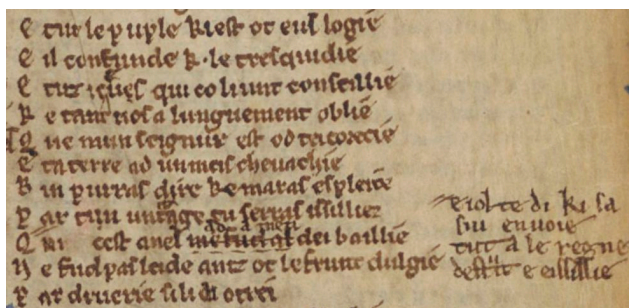 E tut le puple ki est ot eul logie
E il confunde k. le tresquidie
E tuz iceus qui co li unt conseillie
K e tant nos a lunguement oblie
Q ne mun seignur est od tei corecie
E ta terre ad chevachie
B in purras dire ke mar as espleite
P ar tun utrage tu serras issilliez
Q cest anel dei baillie
N e fud pas leide anz ot le frunt dulgie
P ar druerie si li otrei
e iol te di ki sa
sui envoie
tut a le regne
destruit e eissillie